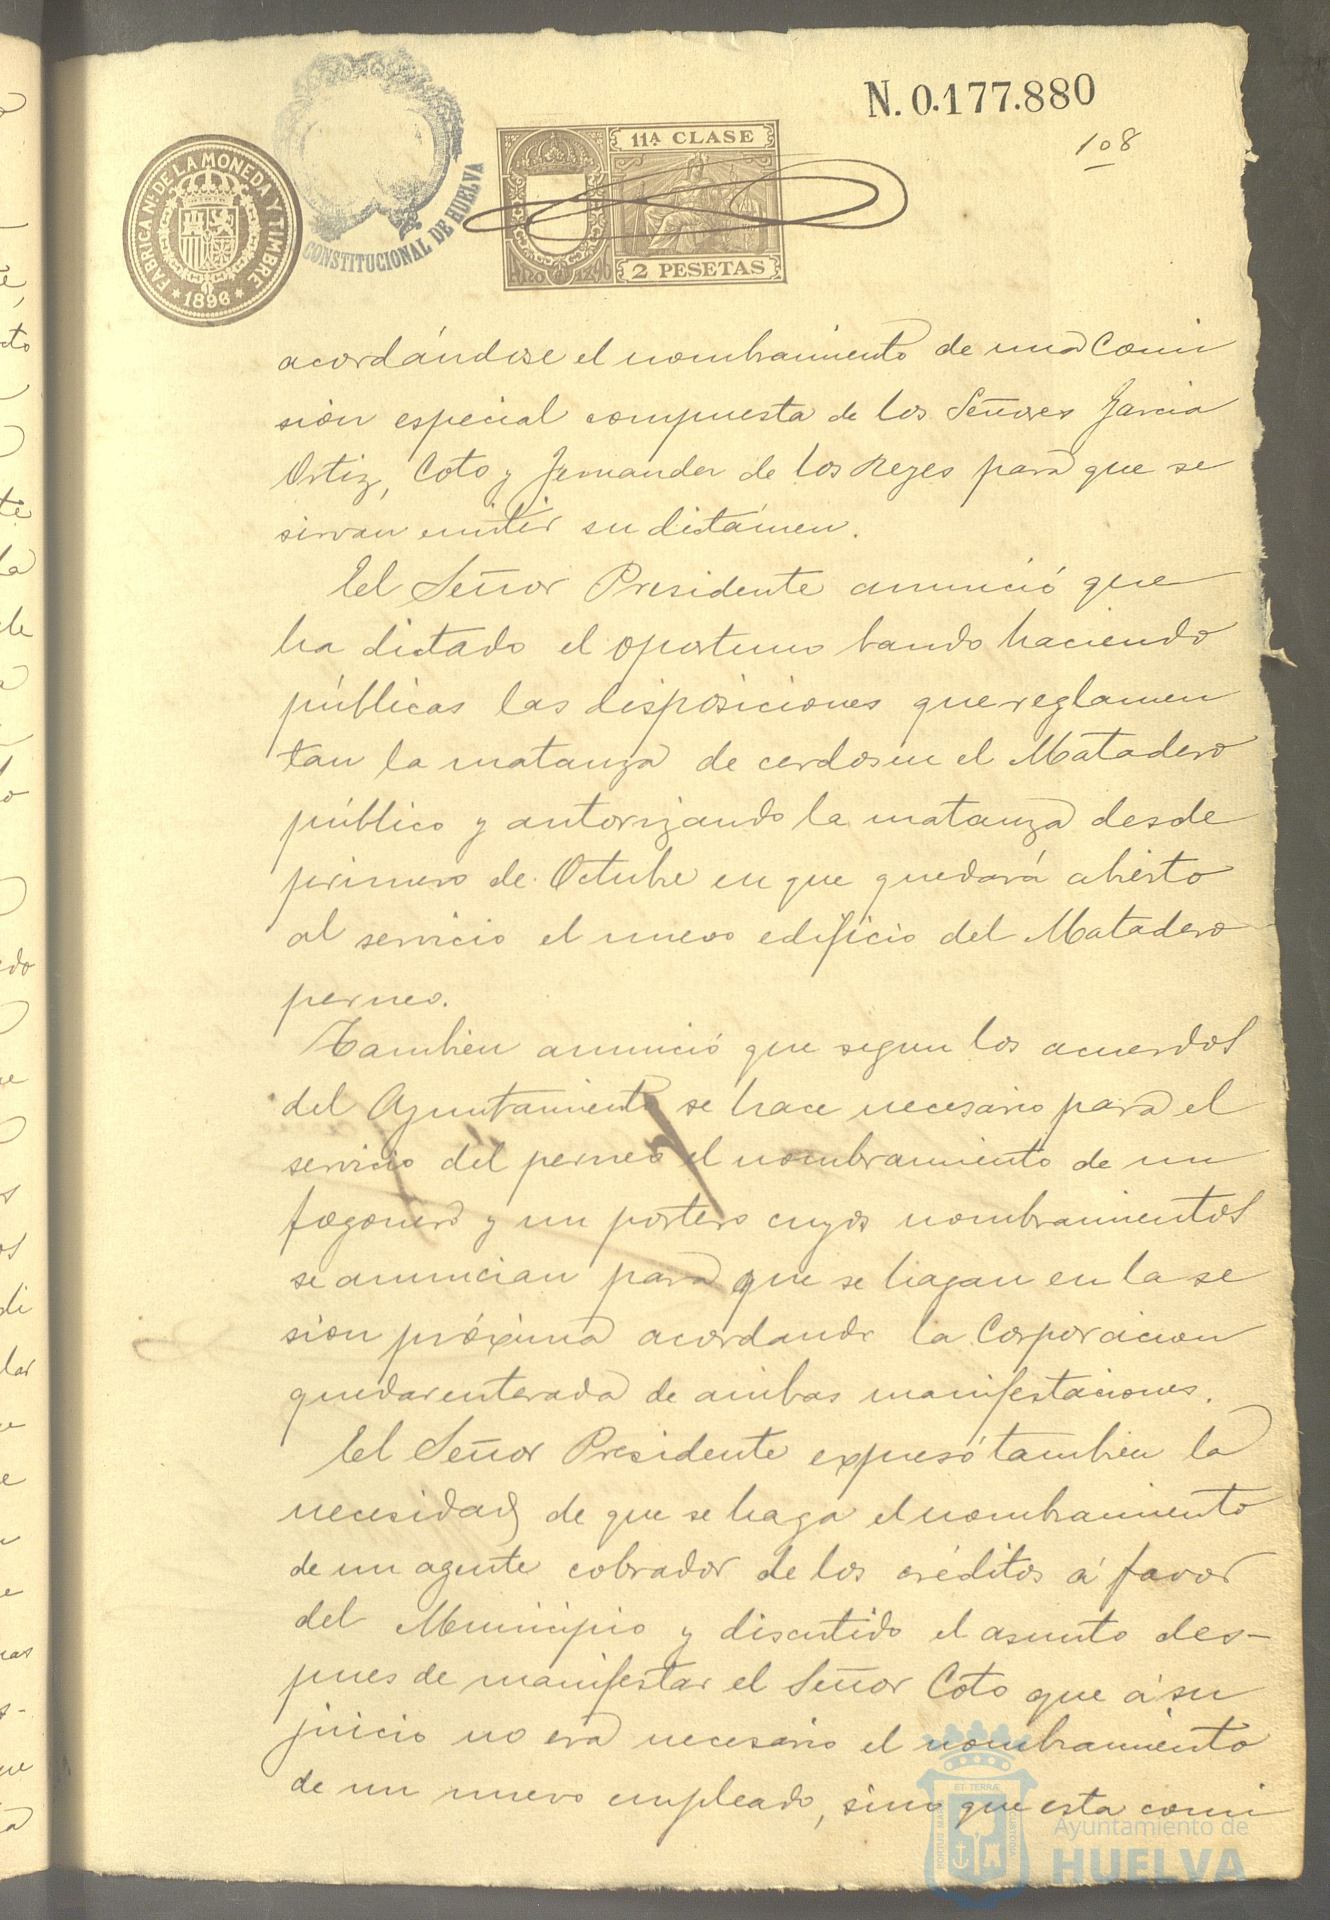 N. 0.177.880
108
FABRICA N. DE LA MONEDA Y TIMBRE
* 1896 *
CONSTITUCIONAL DE HUELVA
11ª CLASE
2 PESETAS
acordándose el nombramiento de una Comi
sión especial compuesta de los Señores Garcia
Ortiz, Coto y Fernandez de los Reyes para que se
sirvan emitir su dictámen.
El Señor Presidente anunció que
ha dictado el oportuno bando haciendo
públicas las disposiciones que reglamen
tan la matanza de cerdos en el Matadero
público y autorizando la matanza desde
primero de Octubre en que quedará abierto
al servicio el nuevo edificio del Matadero
perneo.
Tambien anunció que segun los acuerdos
del Ayuntamiento se hace necesario para el
servicio del perneo el nombramiento de un
fogonero y un portero cuyos nombramientos
se anuncian para que se hagan en la se
sion próxima acordando la Corporacion
quedar enterada de ambas manifestaciones.
El Señor Presidente expresó tambien la
necesidad de que se haga el nombramiento
de un agente cobrador de los créditos á favor
del Municipio y discutido el asunto des-
pues de manifestar el Señor Coto que á su
juicio no era necesario el nombramiento
de un nuevo empleado, sino que esta comi
ET TERRÆ
PORTUS MARIS
CUSTODIA
Ayuntamiento de
HUELVA